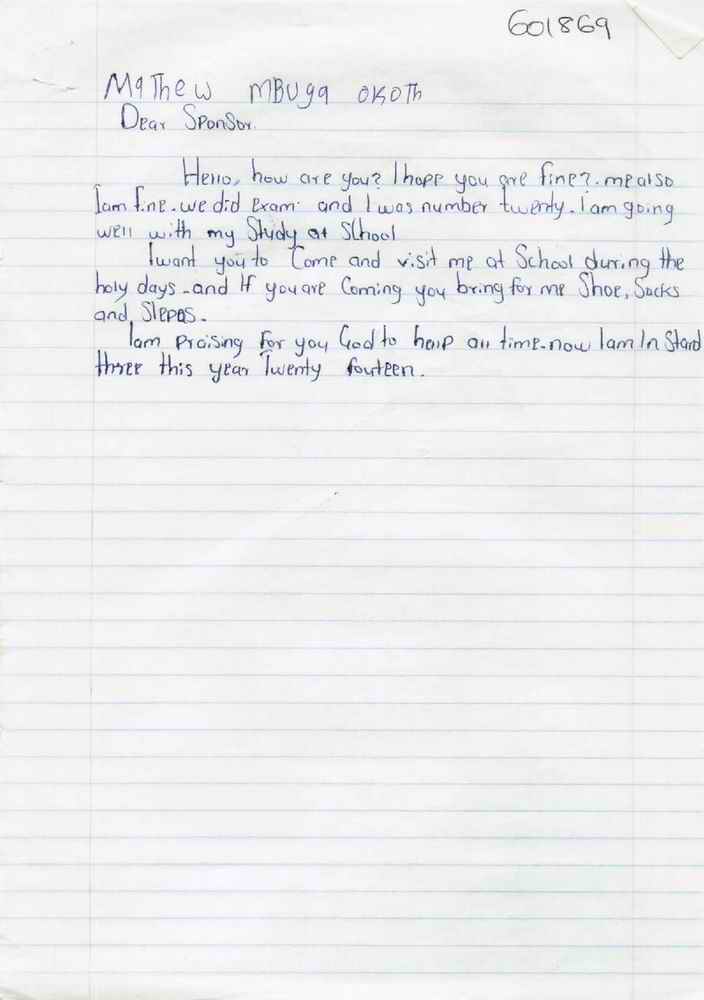 601869
Mathew MBUga OKOTh
Dear Sponsor.
Hello, how are you? I hope you are fine?. me also
Iam fine. we did Exam. and I was number twenty. I am going
well with my Study at School
I want you to Come and visit me at School during the
holy days - and If you are Coming you bring for me Shoe, Socks
and Slepas.
Iam Praising for you God to help all time. now Iam In Stard
three this year Twenty fouteen.